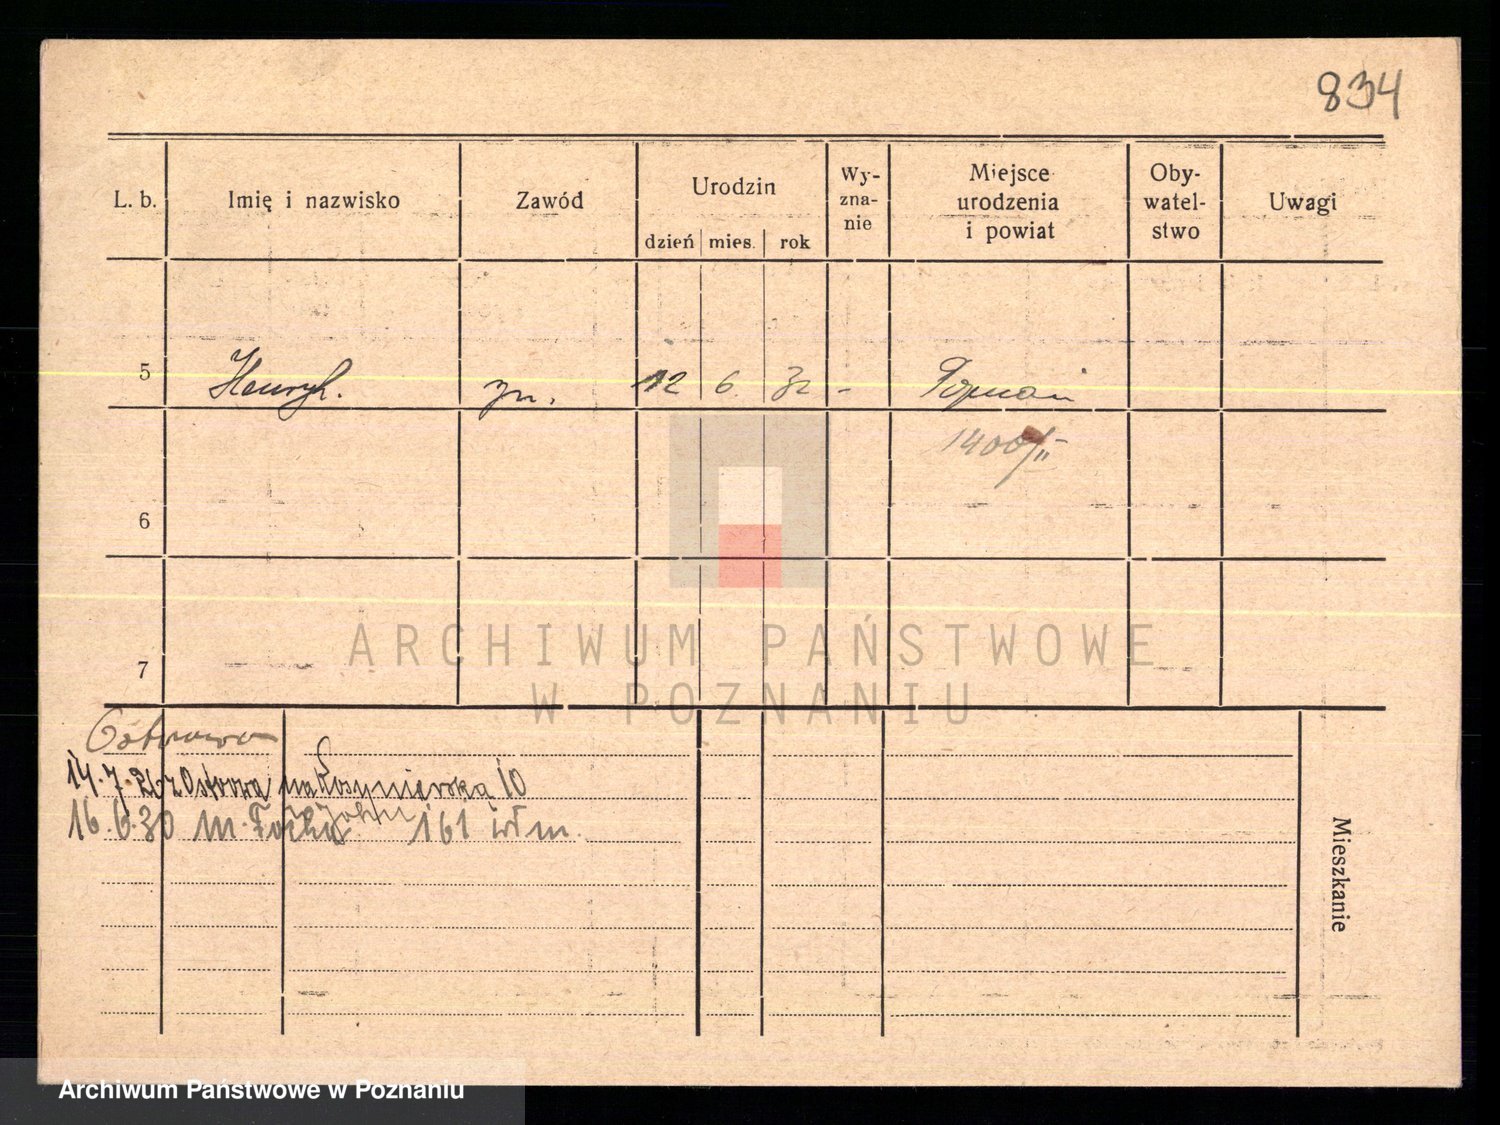 834
L. b. Imię i nazwisko Zawód Urodzin Wy-zna-nie Miejsce urodzenia i powiat Oby-watel-stwo Uwagi
dzień mies. rok
5 Henryk. zn. 12 6. 32 - Poznań
1400/II -
6
7
ARCHIWUM PAŃSTWOWE
W POZNANIU
14.7.26 z Ostrowa na 10
16.6.30 m. Focha 161 wł m.
Mieszkanie
Archiwum Państwowe w Poznaniu